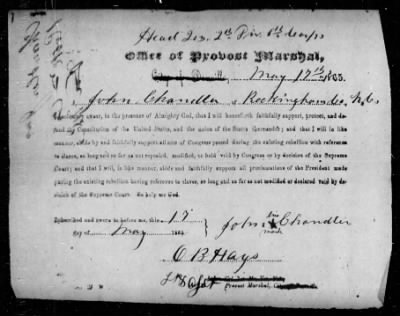 Head Qrs. 2nd Div. 6th Corps
Office of Provost Marshal,
May 17th 1865.
I, John Chandler, Rockingham Co. N.C.
do solemnly swear, in the presence of Almighty God, that I will henceforth faithfully support, protect, and de-
fend the Constitution of the United States, and the union of the States thereunder; and that I will in like
manner, abide by and faithfully support all acts of Congress passed during the existing rebellion with reference
to slaves, so long and so far as not repealed, modified, or held void by Congress or by decision of the Supreme
Court; and that I will, in like manner, abide and faithfully support all proclamations of the President made
during the existing rebellion having reference to slaves, so long and so far as not modified or declared void by
decision of the Supreme Court. So help me God.
Subscribed and sworn to before me, this 17
day of May 186
John his mark Chandler
C B Hays
Provost Marshal,